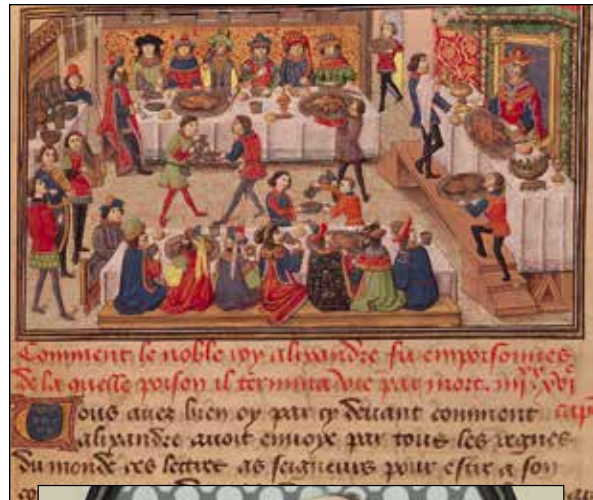 Comment le noble roy alixandre fu empoisonnes
de la quelle poison il termina vie par mort. iiij xx xvi
cap
Vous avez bien oy par cy devant comment
alixandre avoit envoye par tous les regnes
du monde ces lettres as seigneurs pour estre a son